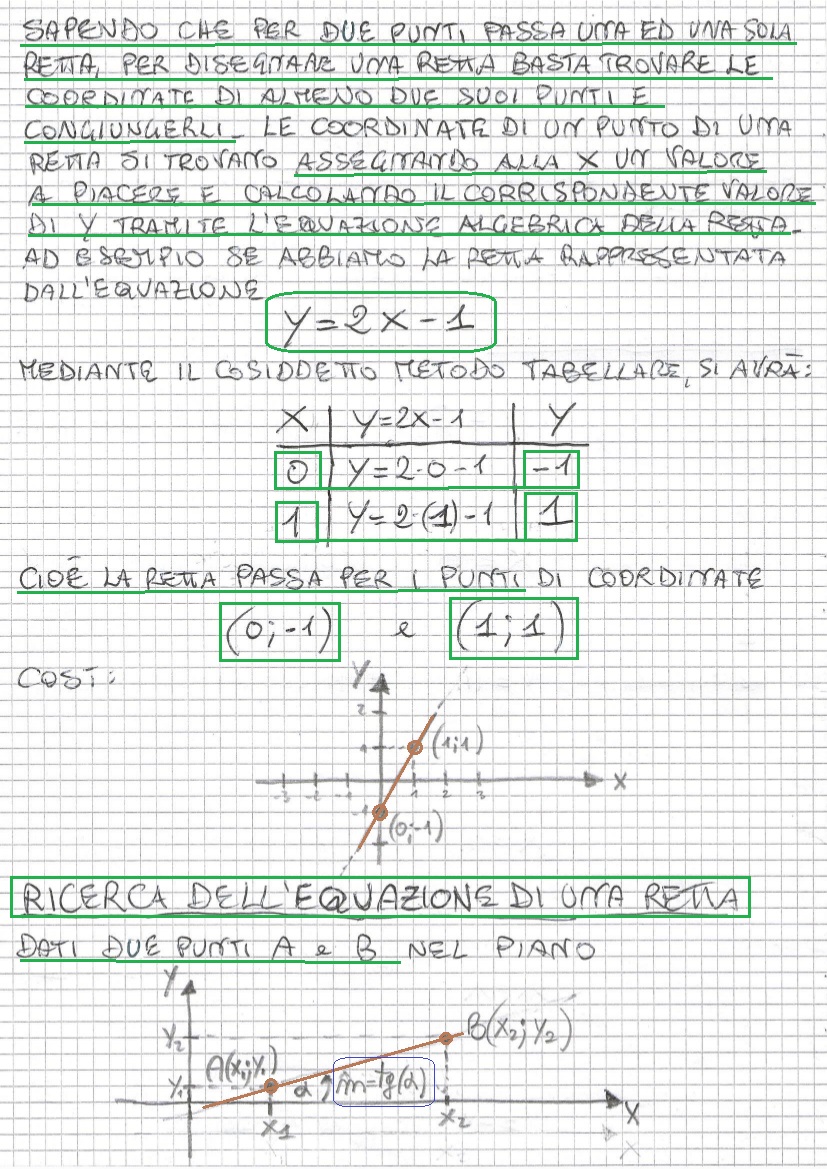 SAPENDO CHE PER DUE PUNTI PASSA UNA ED UNA SOLA
RETTA, PER DISEGNARE UNA RETTA BASTA TROVARE LE
COORDINATE DI ALMENO DUE SUOI PUNTI E
CONGIUNGERLI_ LE COORDINATE DI UN PUNTO DI UNA
RETTA SI TROVANO ASSEGNANDO ALLA X UN VALORE
A PIACERE E CALCOLANDO IL CORRISPONDENTE VALORE
DI Y TRAMITE L'EQUAZIONE ALGEBRICA DELLA RETTA_
AD ESEMPIO SE ABBIAMO LA RETTA RAPPRESENTATA
DALL'EQUAZIONE
Y=2X-1
MEDIANTE IL COSIDDETTO METODO TABELLARE, SI AVRÀ:
X Y=2X-1 Y
0 Y=2·0-1 -1
1 Y=2·(1)-1 1
CIOÈ LA RETTA PASSA PER I PUNTI DI COORDINATE
(0;-1) e (1;1)
COSÌ:
Y
2
1 (1;1)
-3 -2 -1 1 2 3 X
-1
(0;-1)
RICERCA DELL'EQUAZIONE DI UNA RETTA
DATI DUE PUNTI A e B NEL PIANO
Y
Y2 B(X2;Y2)
A(X1;Y1)
Y1 α m=tg(α)
X1 X2 X